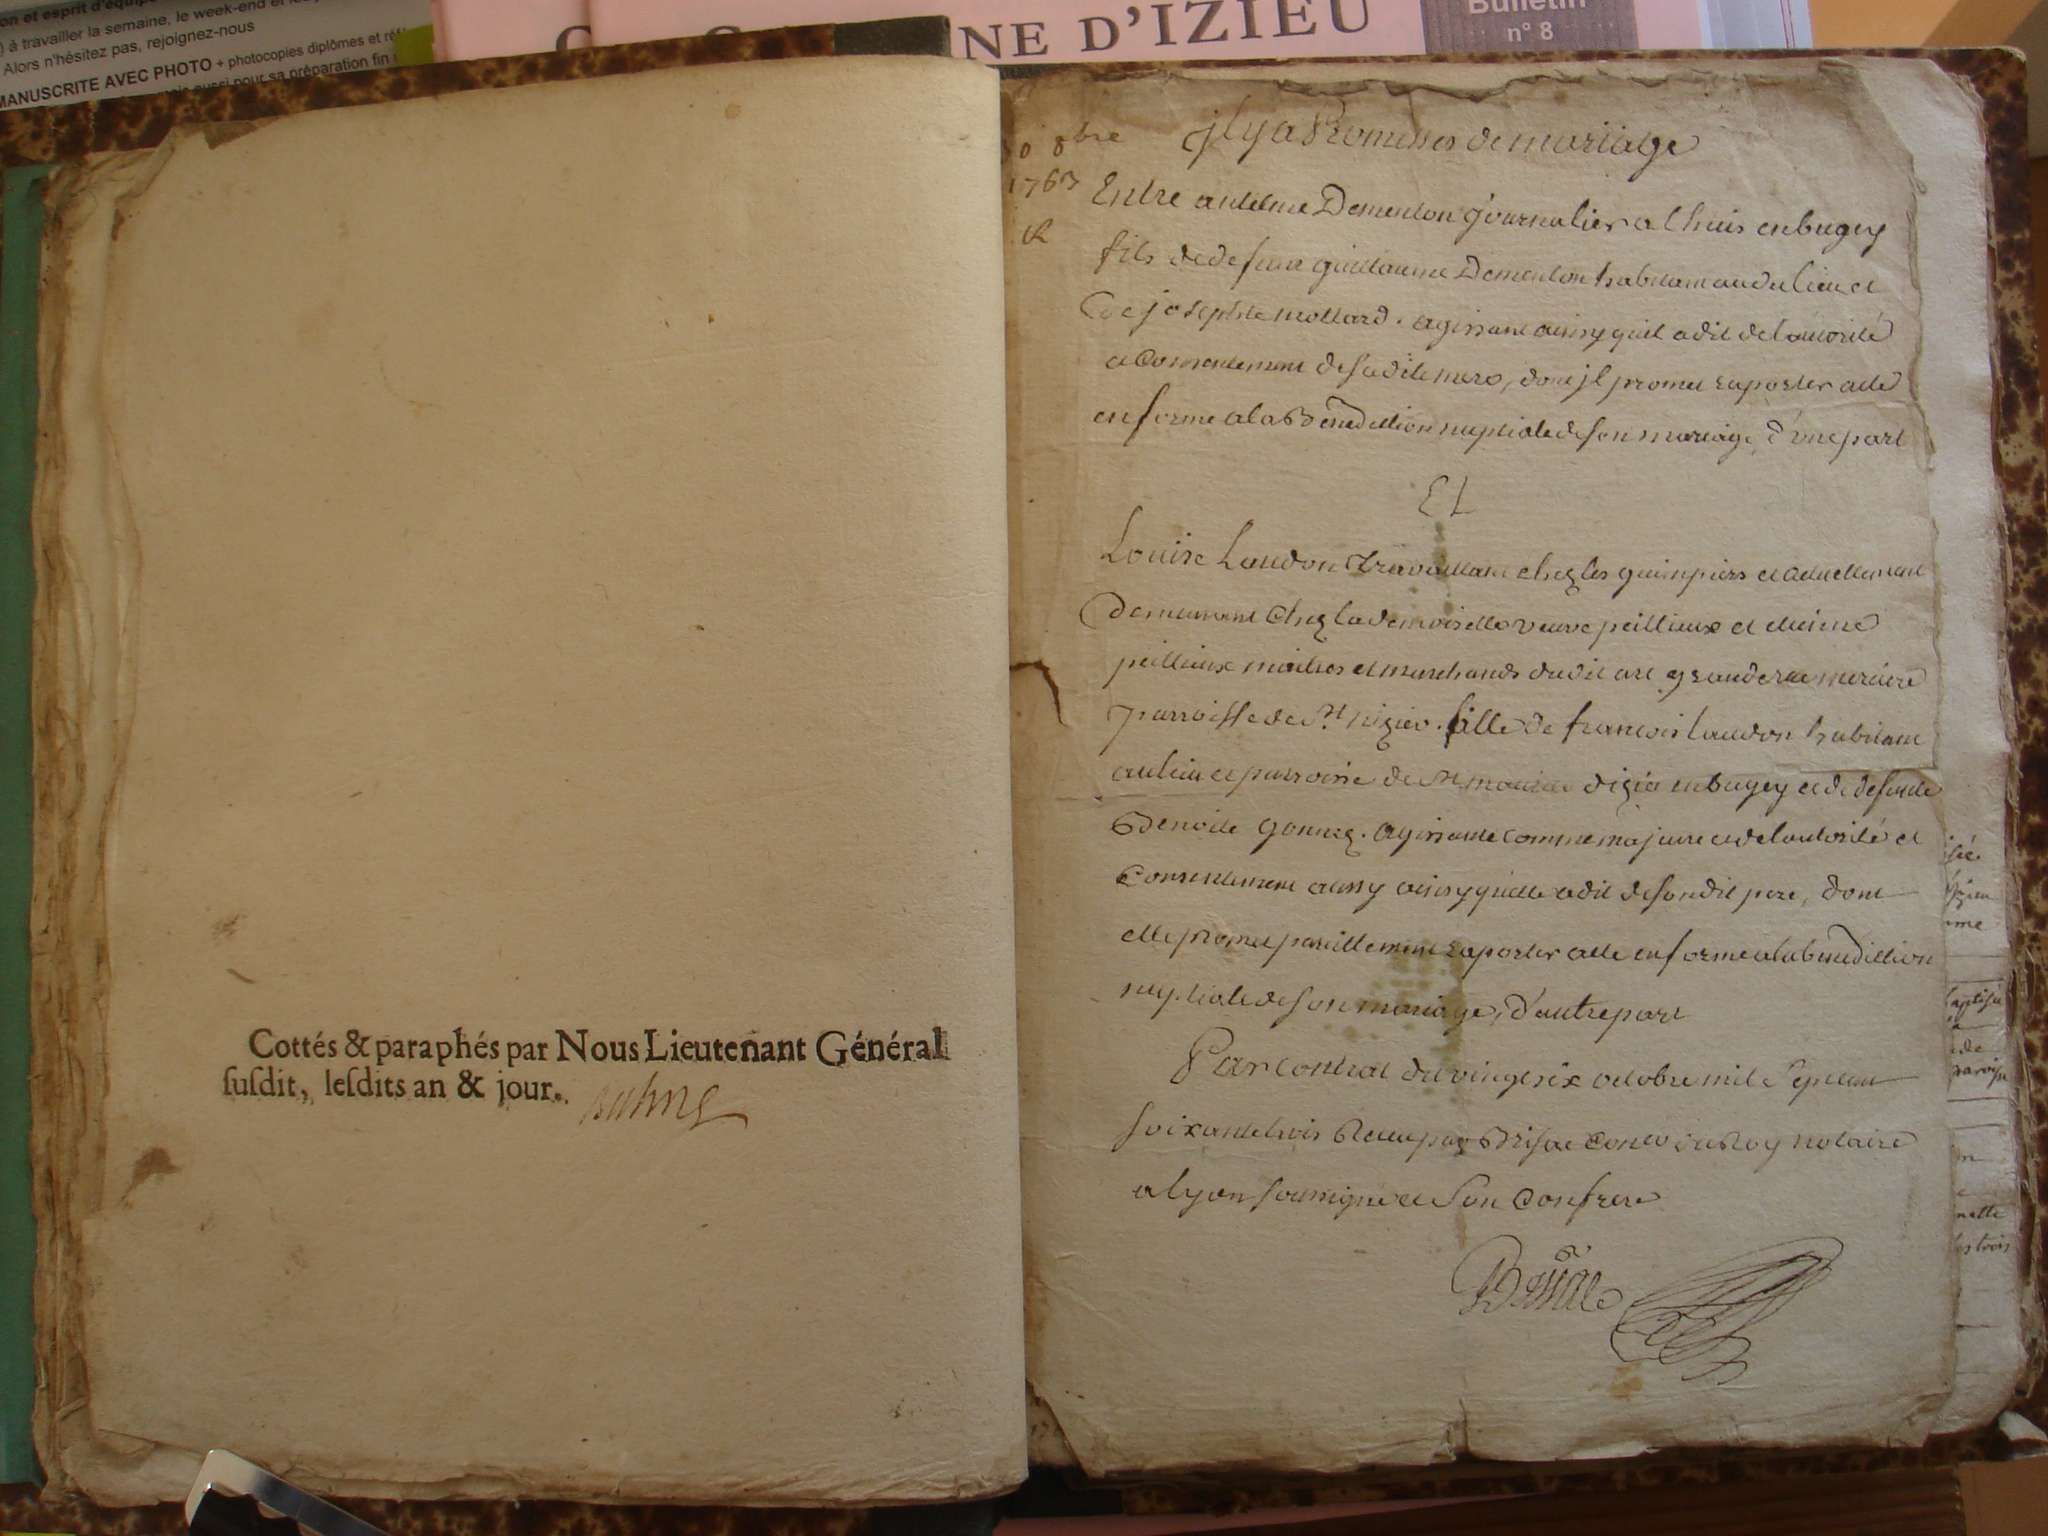 on et esprit d'équipe
) à travailler la semaine, le week-end et les
Alors n'hésitez pas, rejoignez-nous
MANUSCRITE AVEC PHOTO + photocopies diplômes et
aussi pour sa préparation fin
NE D'IZIEU
Bulletin
n° 8
Cottés & paraphés par Nous Lieutenant Général
suſdit, leſdits an & jour.
8bre
1763
jl y a Promesses de mariage
Entre antelme Dementon journalier a lhuis en bugey
fils de defunt guillaume Dementon habitant audit lieu et
de josephte mollard. agissant ainsy quil a dit de lautorité
et consentement de sadite mere, dont jl promet raporter acte
en forme a la Benediction nuptiale de son mariage, d'une part
Et
Louise Laudon travaillant chez les guimpiers et actuellement
demeurant chez la demoiselle veuve peillieux et etienne
peillieux maitres et marchands dudit art grande rue merciere
parroisse de St nizier. fille de francois laudon habitant
au lieu et parroisse de St maurice dizia en bugey et de defunte
Benoite gonnez. agissante comme majeure et de lautorité et
consentement aussy ainsy quelle a dit de son dit pere, dont
elle promet pareillement raporter acte en forme a la benediction
nuptiale de son mariage, d'autre part
Par contrat du vingt six octobre mil sept cent
soixante trois Receu par Brisac Coner du Roy notaire
a lyon soussigné et son confrere
nette
les trois